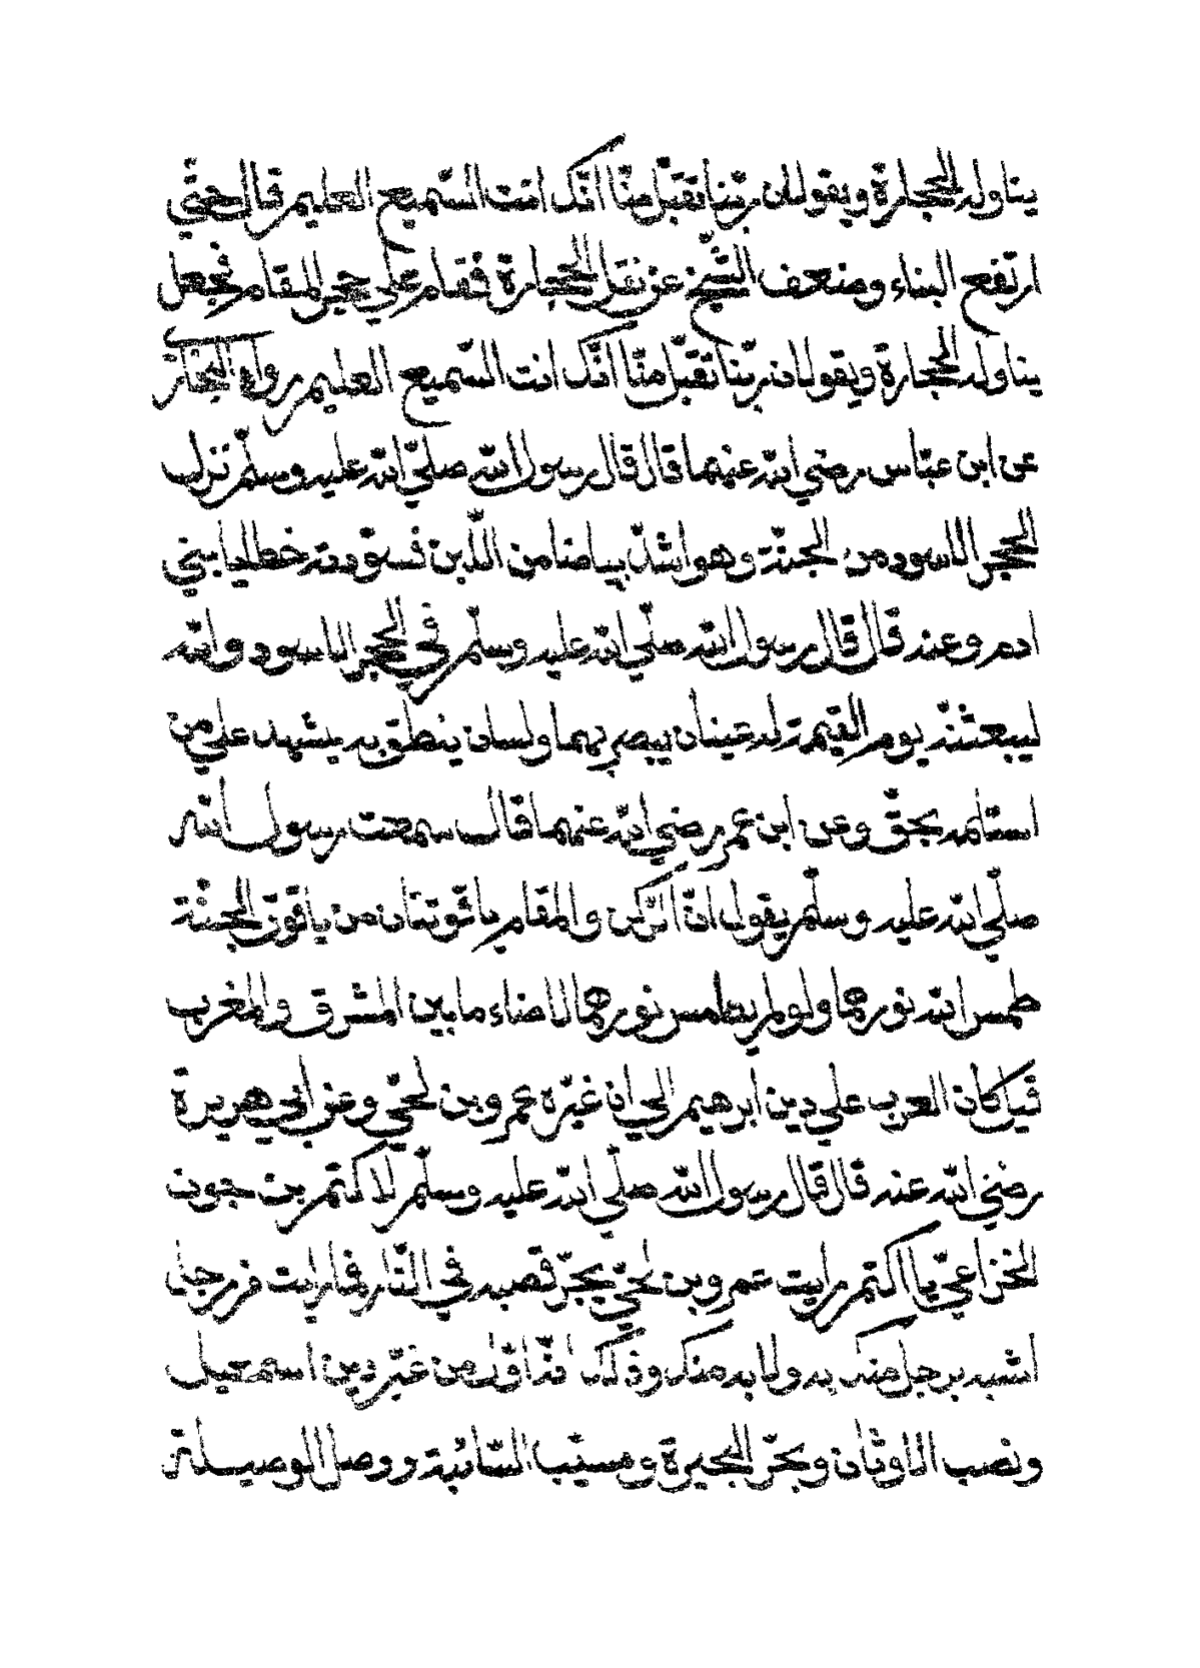 يناوله الحجارة ويقولان ربّنا تقبّل منّا انّك انت السّميع العليم قال حتّي
ارتفع البناء وضعف الشّيخ عن نقل الحجارة فقام علي حجر المقام فجعل
يناوله الحجارة ويقولان ربّنا تقبّل منّا انّك انت السّميع العليم رواه البخاريّ
عن ابن عبّاس رضي اللّه عنهما قال قال رسول اللّه صلّي اللّه عليه وسلّم نزل
الحجر الاسود من الجنّة وهو اشدّ بياضا من اللّبن فسوّدته خطايا بني
ادم وعنه قال قال رسول اللّه صلّي اللّه عليه وسلّم في الحجر الاسود واللّه
ليبعثنّه يوم القيمة له عينان يبصر بهما ولسان ينطق به يشهد علي من
استلمه بحقّ وعن ابن عمر رضي اللّه عنهما قال سمعت رسول اللّه
صلّي اللّه عليه وسلّم يقول انّ الرّكن والمقام ياقوتتان من ياقوت الجنّة
طمس اللّه نورهما ولو لم يطمس نورهما لاضاء ما بين المشرق والمغرب
كان العرب علي دين ابرهيم الي ان غيّره عمرو بن لحيّ وعن ابي هريرة
رضي اللّه عنه قال قال رسول اللّه صلّي اللّه عليه وسلّم لاكتم بن جون
الخزاعيّ يا اكتم رايت عمرو بن لحيّ يجرّ قصبه في النّار فما رايت رجلا
اشبه برجل منك به ولا به منك وذلك انّه اوّل من غيّر دين اسمعيل
ونصب الاوثان وبحّر البحيرة وسيّب السّائبة ووصل الوصيلة